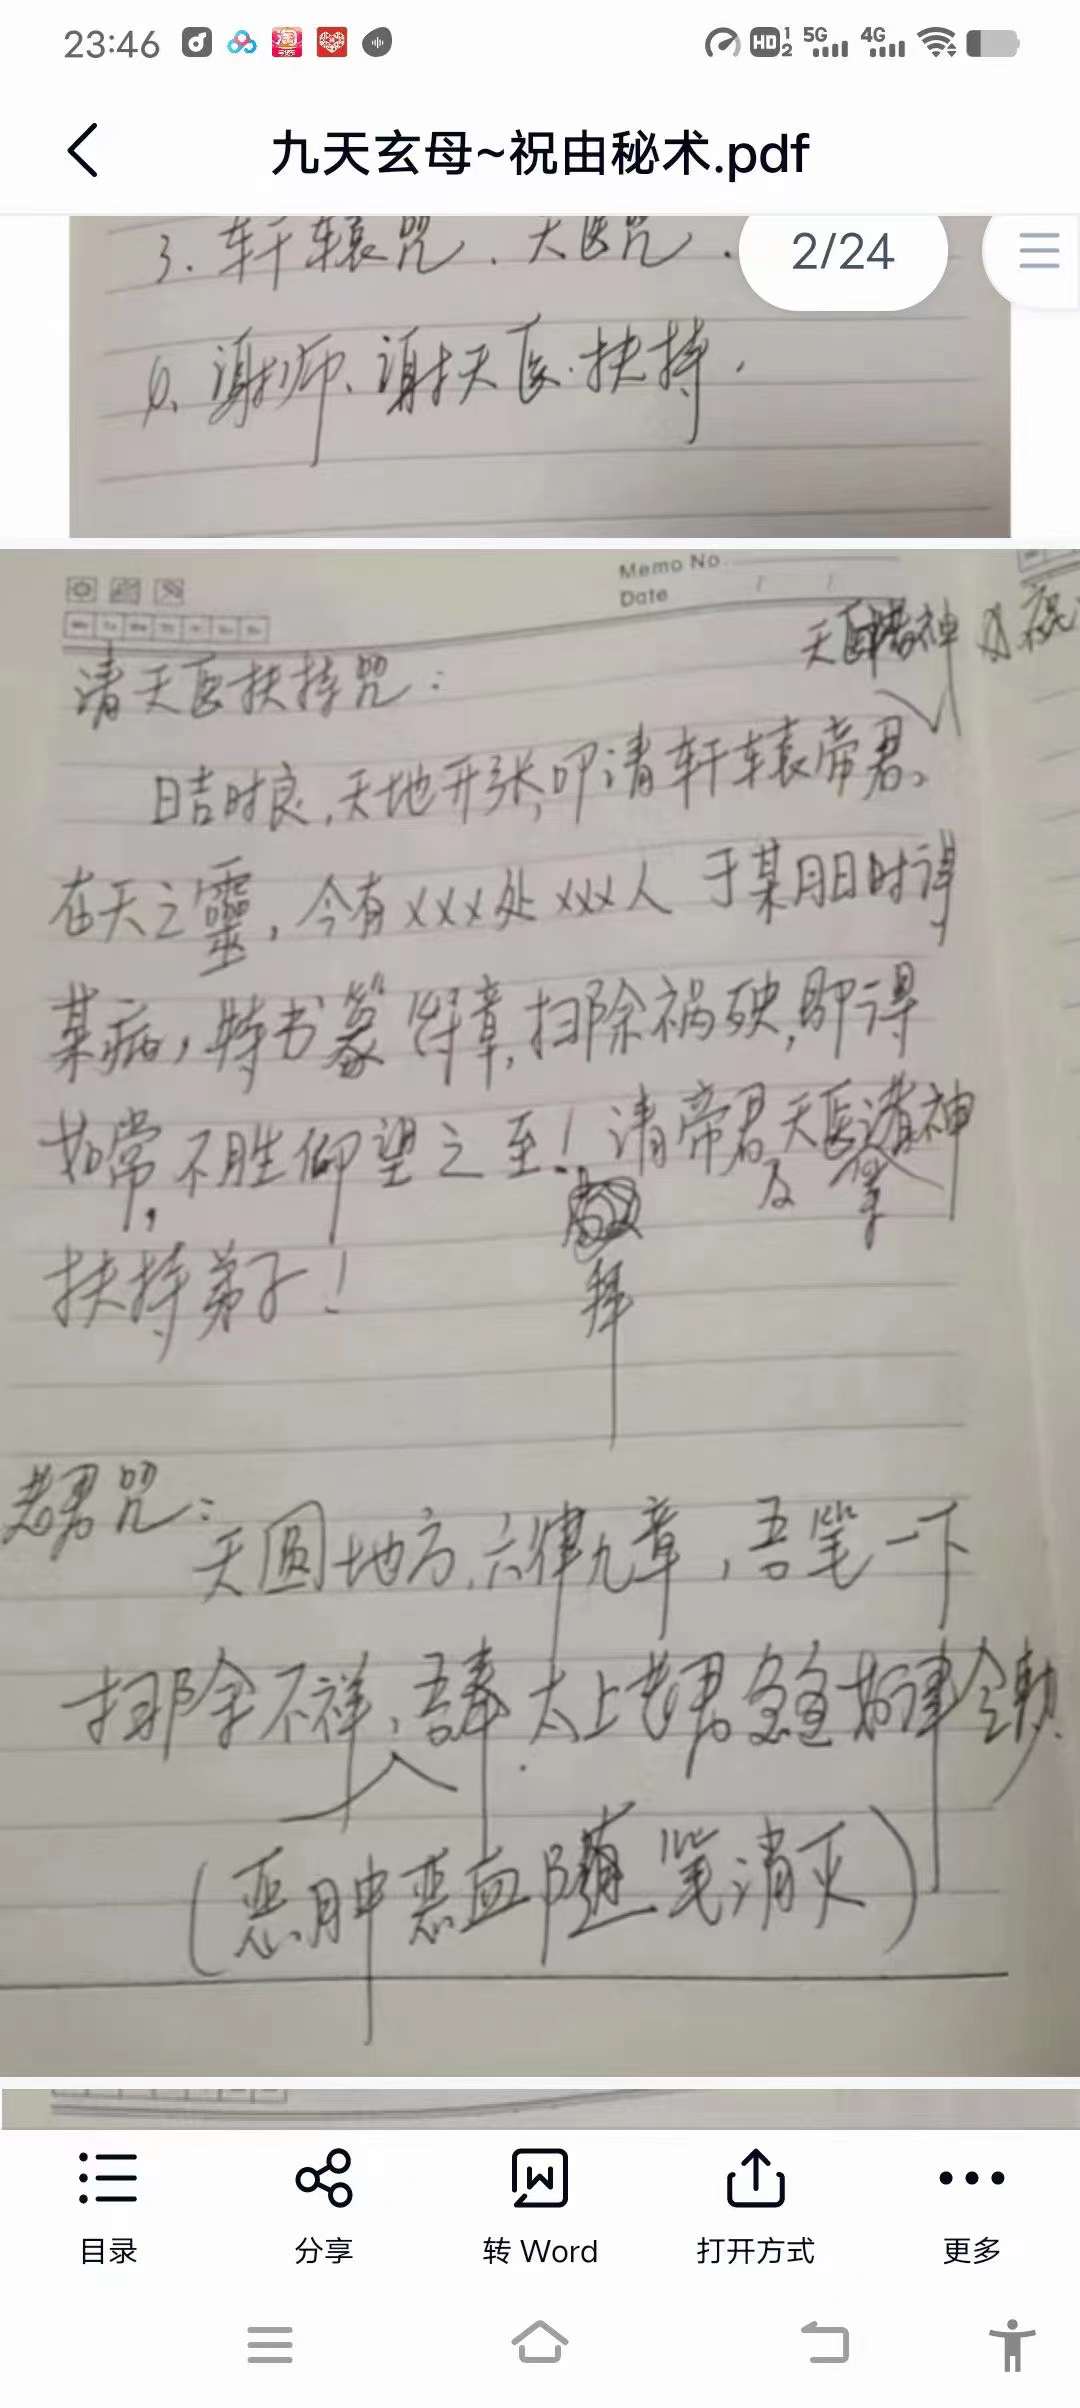 23:46
HD 1 2 5G 4G
九天玄母~祝由秘术.pdf
2/24
3. 轩辕咒. 天医咒.
6. 谢师、谢天医.扶持.
Memo No.
Date / /
天医诸神
请天医扶持咒:
日吉时良,天地开张,叩请轩辕帝君、
在天之靈,今有xxx处xxx人 于某月日时得
某病,特书篆符章,扫除祸殃,即得
如常,不胜仰望之至!请帝君天医诸神
及
拜
扶持弟子!
老君咒:
天圆地方,六律九章,吾笔一下
扫除不祥,吾奉.太上老君急急如律令敕.
(恶肿恶血随笔消灭)
目录
分享
转 Word
打开方式
更多